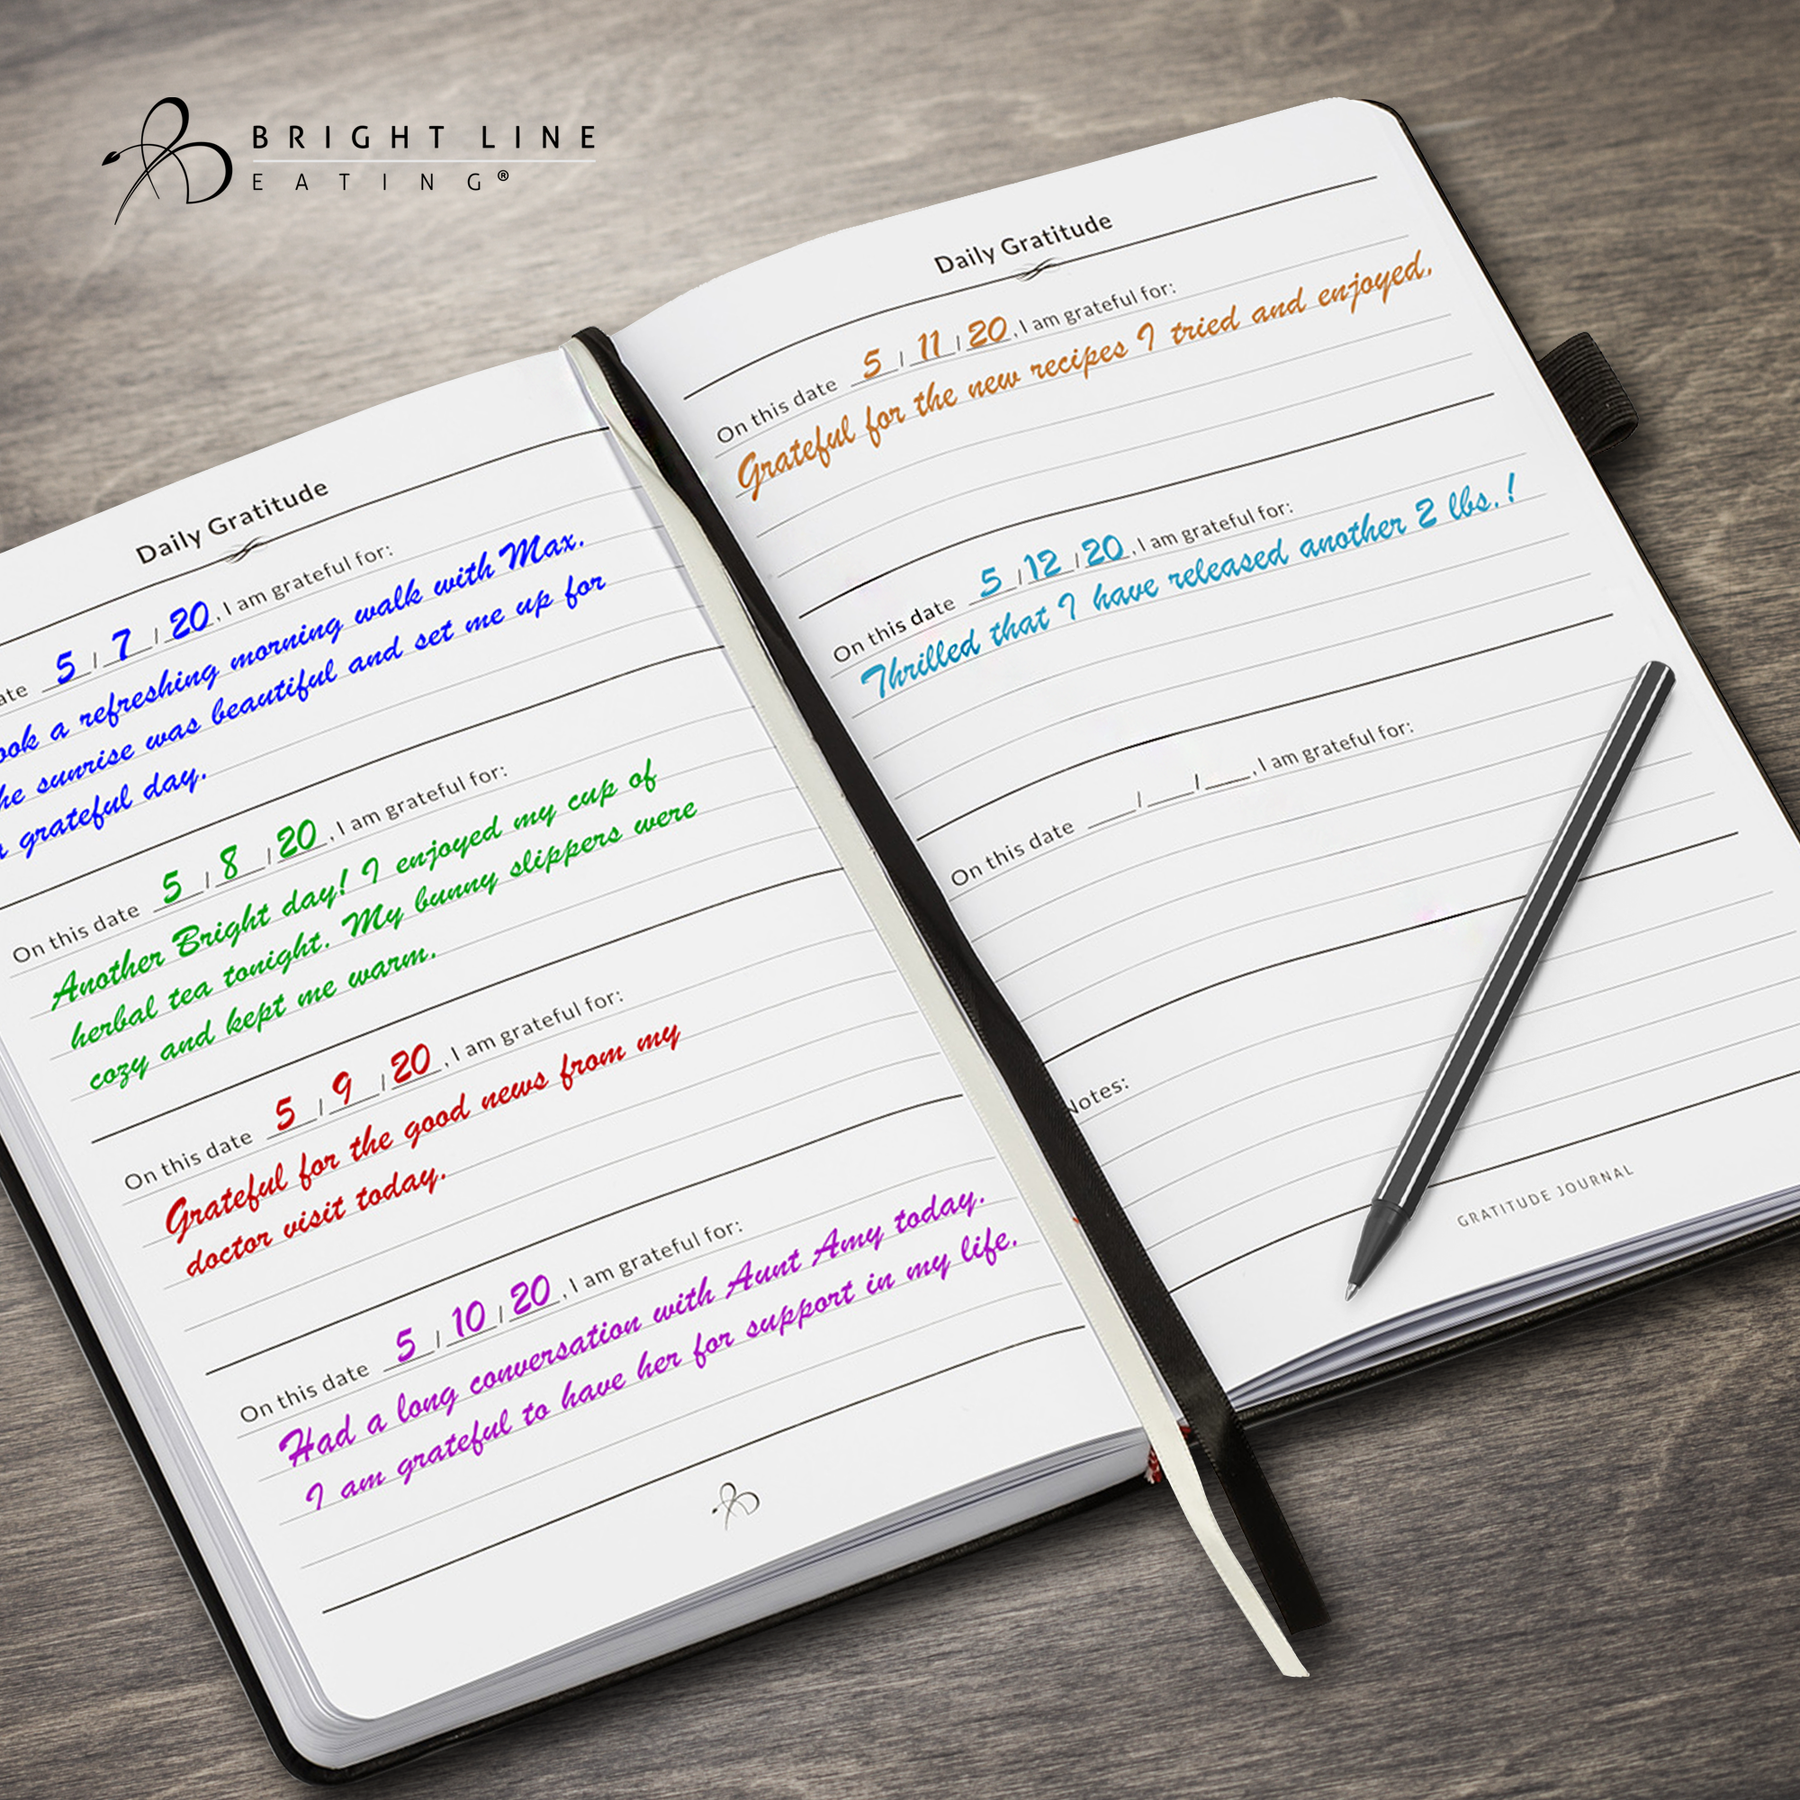 BRIGHT LINE
EATING®
Daily Gratitude
5 / 7 / 20, I am grateful for:
a refreshing morning walk with Max.
sunrise was beautiful and set me up for
grateful day.
On this date 5 / 8 / 20, I am grateful for:
Another Bright day! I enjoyed my cup of
herbal tea tonight. My bunny slippers were
cozy and kept me warm.
On this date 5 / 9 / 20, I am grateful for:
Grateful for the good news from my
doctor visit today.
On this date 5 / 10 / 20, I am grateful for:
Had a long conversation with Aunt Amy today.
I am grateful to have her for support in my life.
Daily Gratitude
On this date 5 / 11 / 20, I am grateful for:
Grateful for the new recipes I tried and enjoyed.
On this date 5 / 12 / 20, I am grateful for:
Thrilled that I have released another 2 lbs.!
On this date ___/___/___, I am grateful for:
Notes:
GRATITUDE JOURNAL